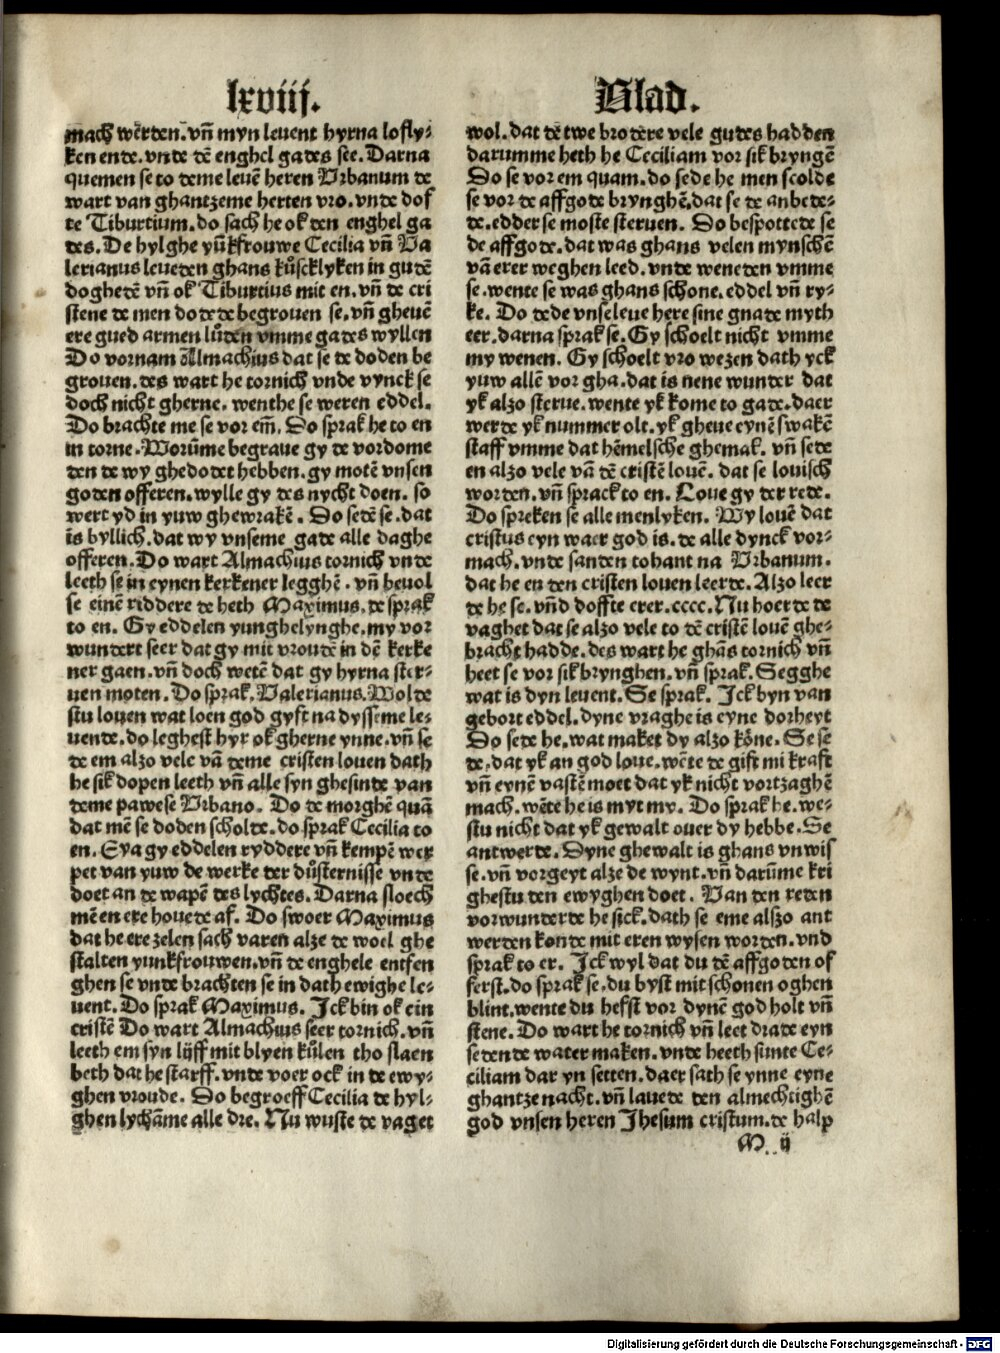 lxviij. Blad.
mach werden. vnn̄ myn leuent hyrna lofly⸗
ken ende. vnde dē enghel gades see. Darna
quemen se to deme leuē heren Vrbanum de
wart van ghantzeme herten vro. vnde dof
te Tiburtium. do sach he ok den enghel ga
des. De hylghe yūkfrouwe Cecilia vn̄ Va
lerianus leueden ghans kůscklyken in gudē
doghedē vn̄ ok Tiburtius mit en. vn̄ de cri
stene de men dodede begrouen se. vn̄ gheuē
ere gued armen lůden vmme gades wyllen
Do vornam Almachius dat se de doden be
grouen. des wart he tornich vnde vynck se
doch nicht gherne. wenthe se weren eddel.
Do brachte me se vor em̄. Do sprak he to en
in torne. Worūme begraue gy de vordome
den de wy ghedodet hebben. gy motē vnsen
goden offeren. wylle gy des nycht doen. so
wert yd in yuw ghewrakē. Do sedē se. dat
is byllich. dat wy vnseme gade alle daghe
offeren. Do wart Almachius tornich vnde
leeth se in eynen kerkener legghē. vn̄ beuol
se einē riddere de heth Maximus. de sprak
to en. Gy eddelen yunghelynghe. my vor
wundert seer dat gy mit vroude in dē kerke
ner gaen. vn̄ doch wetē dat gy hyrna ster⸗
uen moten. Do sprak. Valerianus. Wolde
stu louen wat loen god gyft na dysseme le⸗
uende. do leghest hyr ok gherne ynne. vn̄ se
de em alzo vele vā deme cristen louen dath
he sik dopen leeth vn̄ alle syn ghesinde van
deme pawese Vrbano. Do de morghē quā
dat mē se doden scholde. do sprak Cecilia to
en. Eya gy eddelen ryddere vn̄ kempē wer
pet van yuw de werke der důsternisse vnde
doet an de wapē des lychtes. Darna sloech
mē en ere houede af. Do swoer Maximus
dat he ere zelen sach varen alze de woel ghe
stalten yunkfrouwen. vn̄ de enghele entfen
ghen se vnde brachten se in dath ewighe le⸗
uent. Do sprak Maximus. Jck bin ok ein
cristē Do wart Almachius seer tornich. vn̄
leeth em syn lijff mit blyen kůlen tho slaen
beth dat he starff. vnde voer ock in de ewy⸗
ghen vroude. Do begroeff Cecilia de hyl⸗
ghen lychāme alle dre. Nu wuste de vaget
wol. dat de twe brodere vele gudes hadden
darumme heth he Ceciliam vor sik bryngē
Do se vor em quam. do sede he men scolde
se vor de affgode brynghē. dat se de anbede⸗
de. edder se moste steruen. Do bespottede se
de affgode. dat was ghans velen mynschē
vā erer weghen leed. vnde weneden vmme
se. wente se was ghans schone. eddel vn̄ ry⸗
ke. Do dede vnse leue here sine gnade myth
eer. darna sprak se. Gy schoelt nicht vmme
my wenen. Gy schoelt vro wezen dath yck
yuw allē vor gha. dat is nene wunder dat
yk alzo sterue. wente yk kome to gade. daer
werde yk nummer olt. yk gheue eynē swakē
staff vmme dat hēmelsche ghemak. vn̄ sede
en alzo vele vā dē cristē louē. dat se louisch
worden. vn̄ sprack to en. Loue gy der rede.
Do spreken se alle menlyken. Wy louē dat
cristus eyn waer god is. de alle dynck vor⸗
mach. vnde sanden tohant na Vrbanum.
dat he en den cristen louen leerde. Alzo leer
de he se. vnd doffte erer. cccc. Nu hoerde de
vaghet dat se alzo vele to dē cristē louē ghe⸗
bracht hadde. des wart he ghās tornich vn̄
heet se vor sik brynghen. vn̄ sprak. Segghe
wat is dyn leuent. Se sprak. Jck byn van
gebort eddel. dyne vraghe is eyne dorheyt
Do sede he. wat maket dy alzo kône. Se se
de. dat yk an god loue. wēte de gift mi kraft
vn̄ eynē vastē moet dat yk nicht vortzaghē
mach. wēte he is myt my. Do sprak he. we⸗
stu nicht dat yk gewalt ouer dy hebbe. Se
antwerde. Dyne ghewalt is ghans vnwis
se. vn̄ vorgeyt alze de wynt. vn̄ darūme kri
ghestu den ewyghen doet. Van den reden
vorwunderde he sick. dath se eme alszo ant
werden konde mit eren wysen worden. vnd
sprak to er. Jck wyl dat du dē affgoden of
ferst. do sprak se. du byst mit schonen oghen
blint. wente du hefst vor dynē god holt vn̄
stene. Do wart he tornich vn̄ leet drade eyn
sedende water maken. vnde heeth sunte Ce⸗
ciliam dar yn setten. daer sath se ynne eyne
ghantze nacht. vn̄ lauede den almechtighē
god vnsen heren Jhesum cristum. de halp
M ij
Digitalisierung gefördert durch die Deutsche Forschungsgemeinschaft - DFG